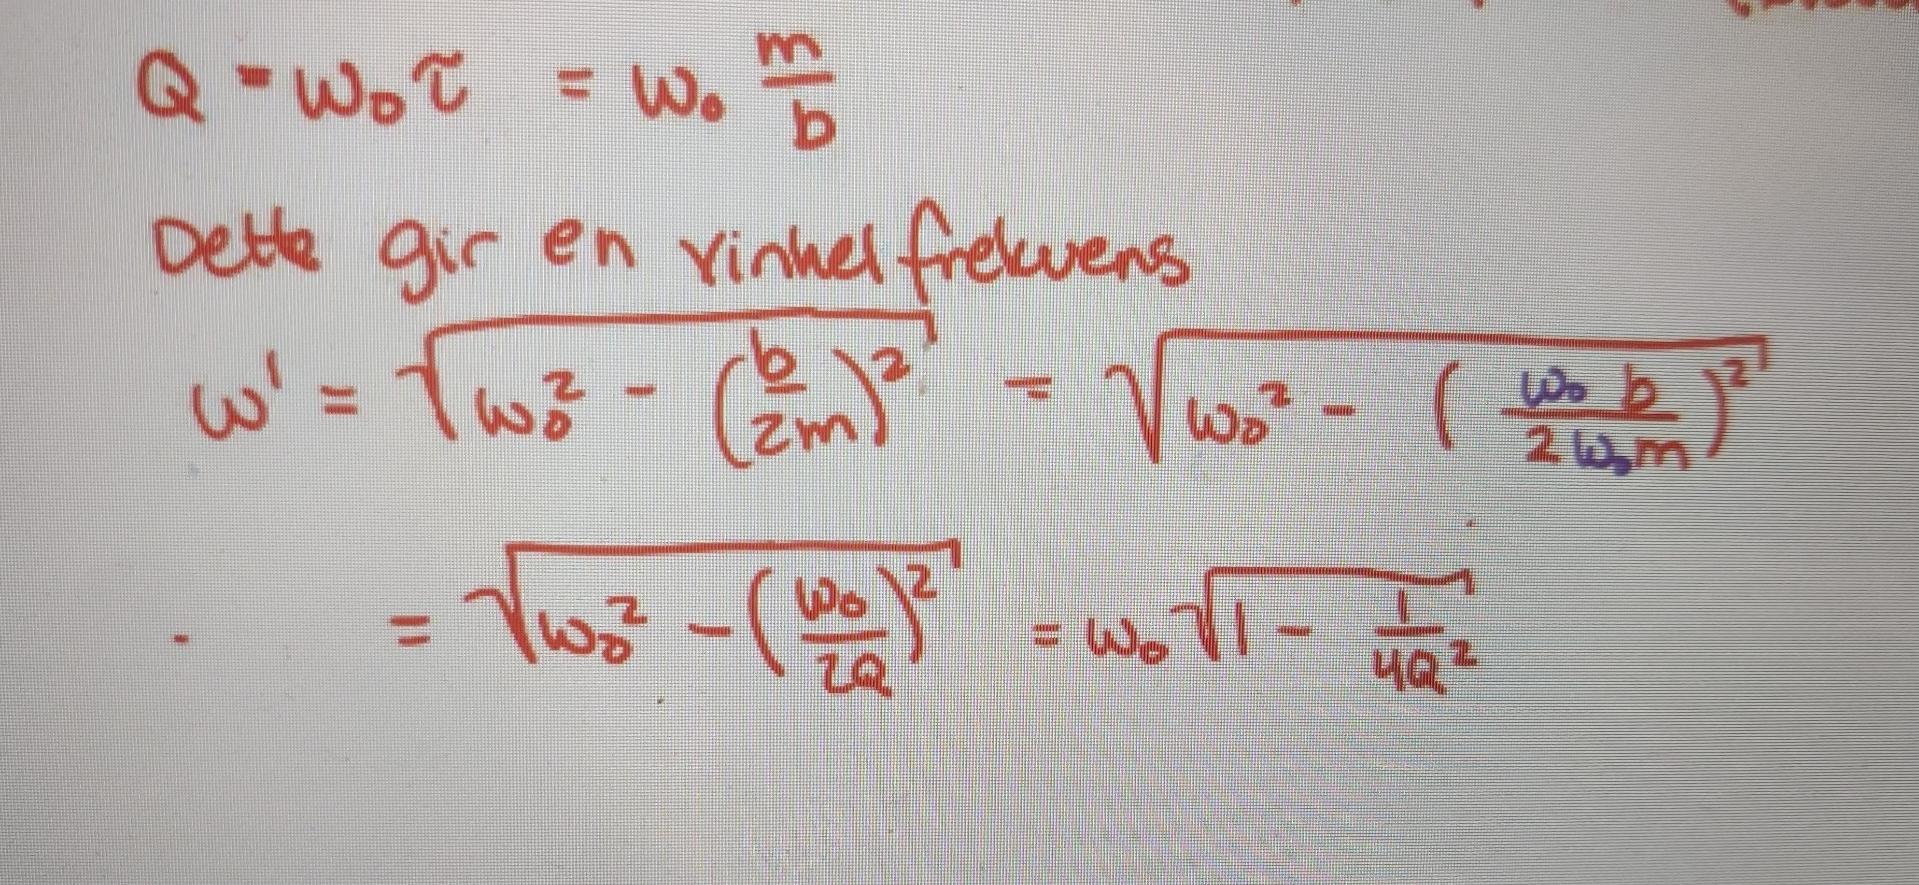 Q = ω₀τ = ω₀ m/b
Dette gir en vinkelfrekvens
ω' = √(ω₀² - (b/2m)²) = √(ω₀² - (ω₀ b/2 ω₀ m)²)
= √(ω₀² - (ω₀/2Q)²) = ω₀ √(1 - 1/4Q²)